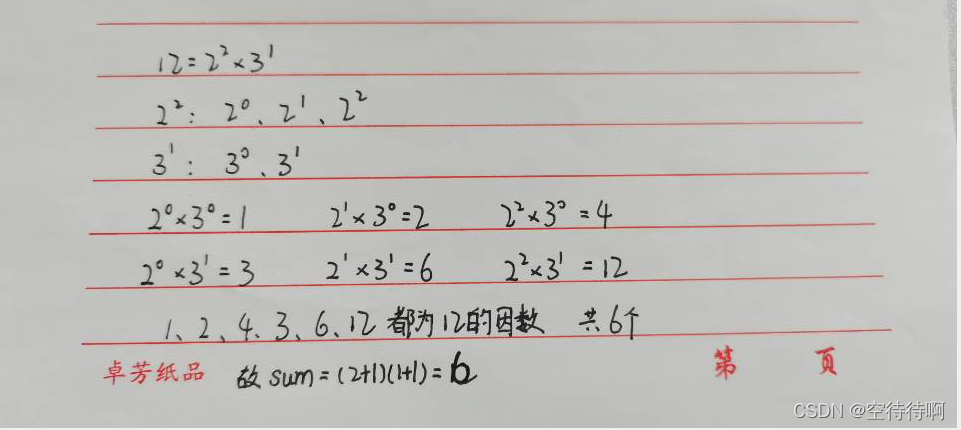 12=2²×3¹
2²: 2⁰、2¹、2²
3¹: 3⁰、3¹
2⁰×3⁰=1 2¹×3⁰=2 2²×3⁰=4
2⁰×3¹=3 2¹×3¹=6 2²×3¹=12
1、2、4、3、6、12 都为12的因数 共6个
卓芳纸品 故 sum=(2+1)(1+1)=6 第 页
CSDN @空待待啊